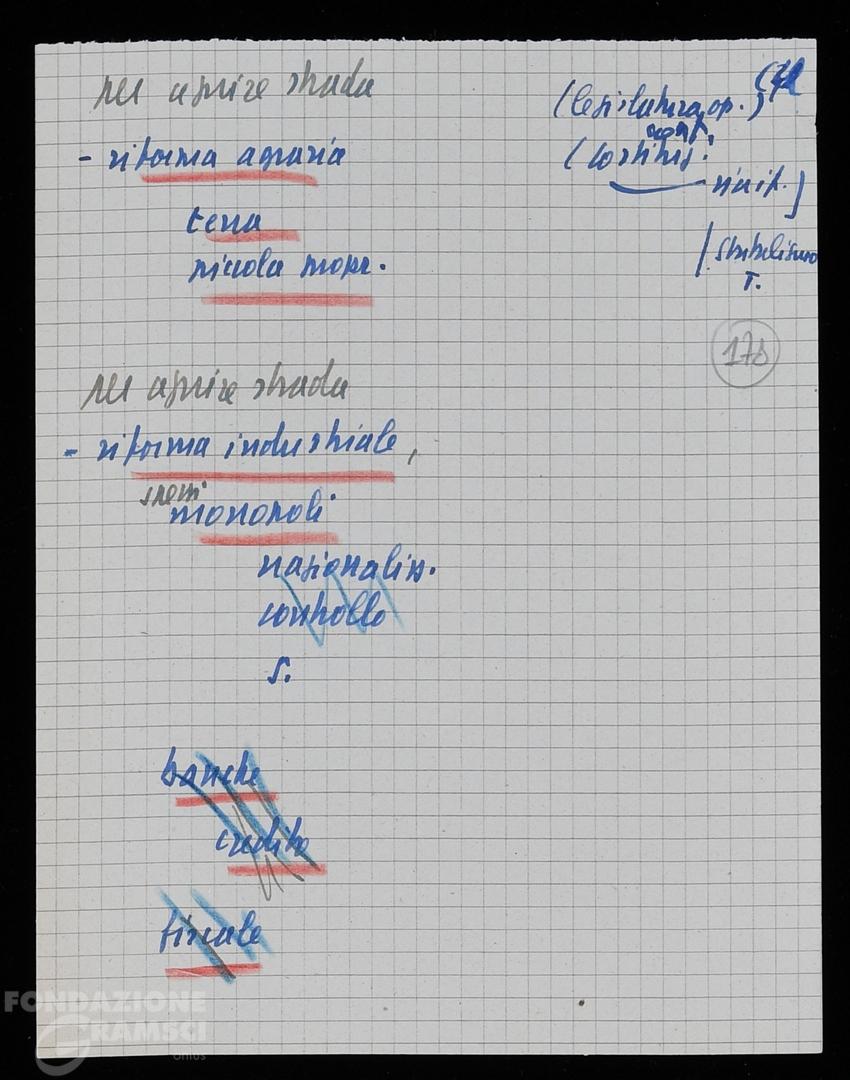 per aprire strada
- riforma agraria
terra
piccola propr.
(legislatura op.)
cont.
(costituz.
unit.]
/ statalismo
T.
178
per aprire strada
- riforma industriale,
spezzi
monopoli
nazionalizz.
controllo
S.
banche
credito
fiscale
FONDAZIONE
GRAMSCI
onlus